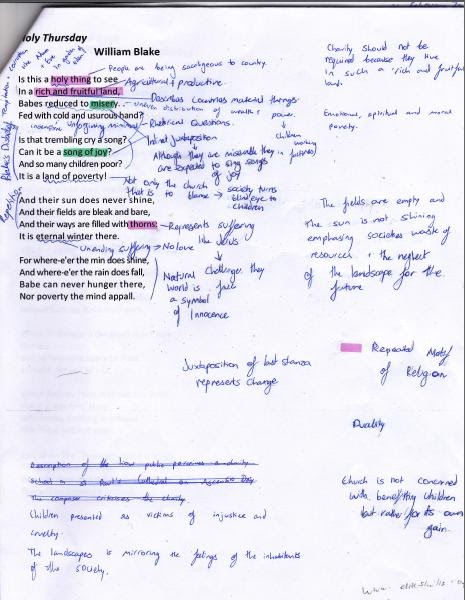 Holy Thursday
William Blake
People are being sacrilegious to country.
Is this a holy thing to see
Agricultural + productive.
In a rich and fruitful land,
Babes reduced to misery.
Describes Countries material things.
uneven distribution of wealth + power.
Fed with cold and usurous hand?
insensitive unforgiving
Rhetorical Questions.
Is that trembling cry a song?
Juxtaposition
children working
Can it be a song of joy?
Although they are miserable they
are expected to sing songs
of joy
And so many children poor?
It is a land of poverty!
Not only the church
that is to blame → society turns
blind eye to
children
And their sun does never shine,
And their fields are bleak and bare,
And their ways are filled with thorns:
Represents suffering
like Jesus
It is eternal winter there.
Unending suffering → No love
For where-e'er the min does shine,
And where-e'er the rain does fall,
Babe can never hunger there,
Nor poverty the mind appall.
Natural Challenge they
world is free
a symbol
of Innocence
Charity should not be
required because they live
in such a 'rich and fruitful
land.
Emotional, spiritual and moral
poverty.
The fields are empty and
The sun is not shining
emphasing societies waste of
resources + the neglect
of the landscape for the
future
Blake's Duality
Repetition
Juxtaposition of last stanza
represents change
Repeated Motif
of Religion
Duality
Description of the how public perceives a charity
school in St Paul's Cathedral on Ascension Day
The composer criticises the charity.
Children presented as victims of injustice and
cruelty.
The landscapes is mirroring the feelings of the inhabitants
of the society.
Church is not concerned
with benefitting children
but rather for its own
gain.